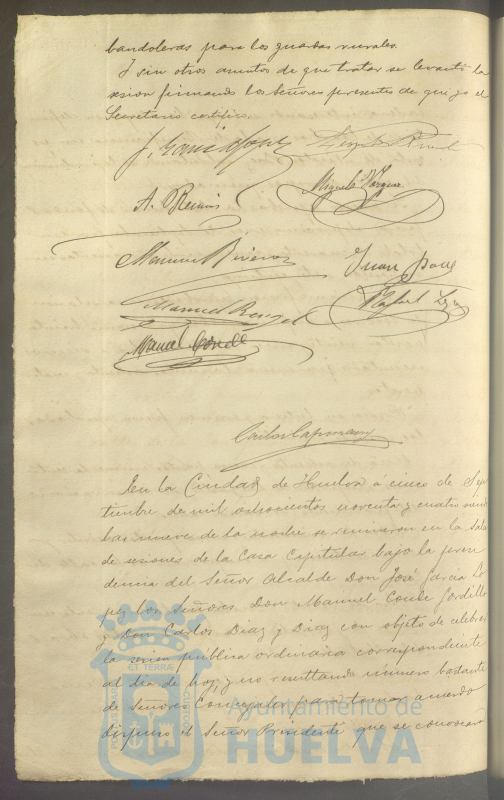 bandoleras para los guardas rurales.
Y sin otros asuntos de que tratar se levantó la
sesion firmando los Señores presentes de que yo el
Secretario certifico.
J. Garcia Lopez
A. Recio
Miguel Vazquez
Manuel Rivero
Juan
Manuel Rengel
Rafael
Manuel Conde
Carlos Capmany
En la Ciudad de Huelva á cinco de Sep
tiembre de mil ochocientos noventa y cuatro siendo
las nueve de la noche se reunieron en la Sala
de sesiones de la Casa Capitular, bajo la presi
dencia del Señor Alcalde Don José Garcia Lo
pez los Señores Don Manuel Conde Gordillo
y Don Carlos Diaz y Diaz con objeto de celebrar
la sesion pública ordinaria correspondiente
al dia de hoy, y no resultando número bastante
de Señores Concejales para tomar acuerdo
dispuso el Señor Presidente que se convocara
ET TERRÆ
Ayuntamiento de
HUELVA